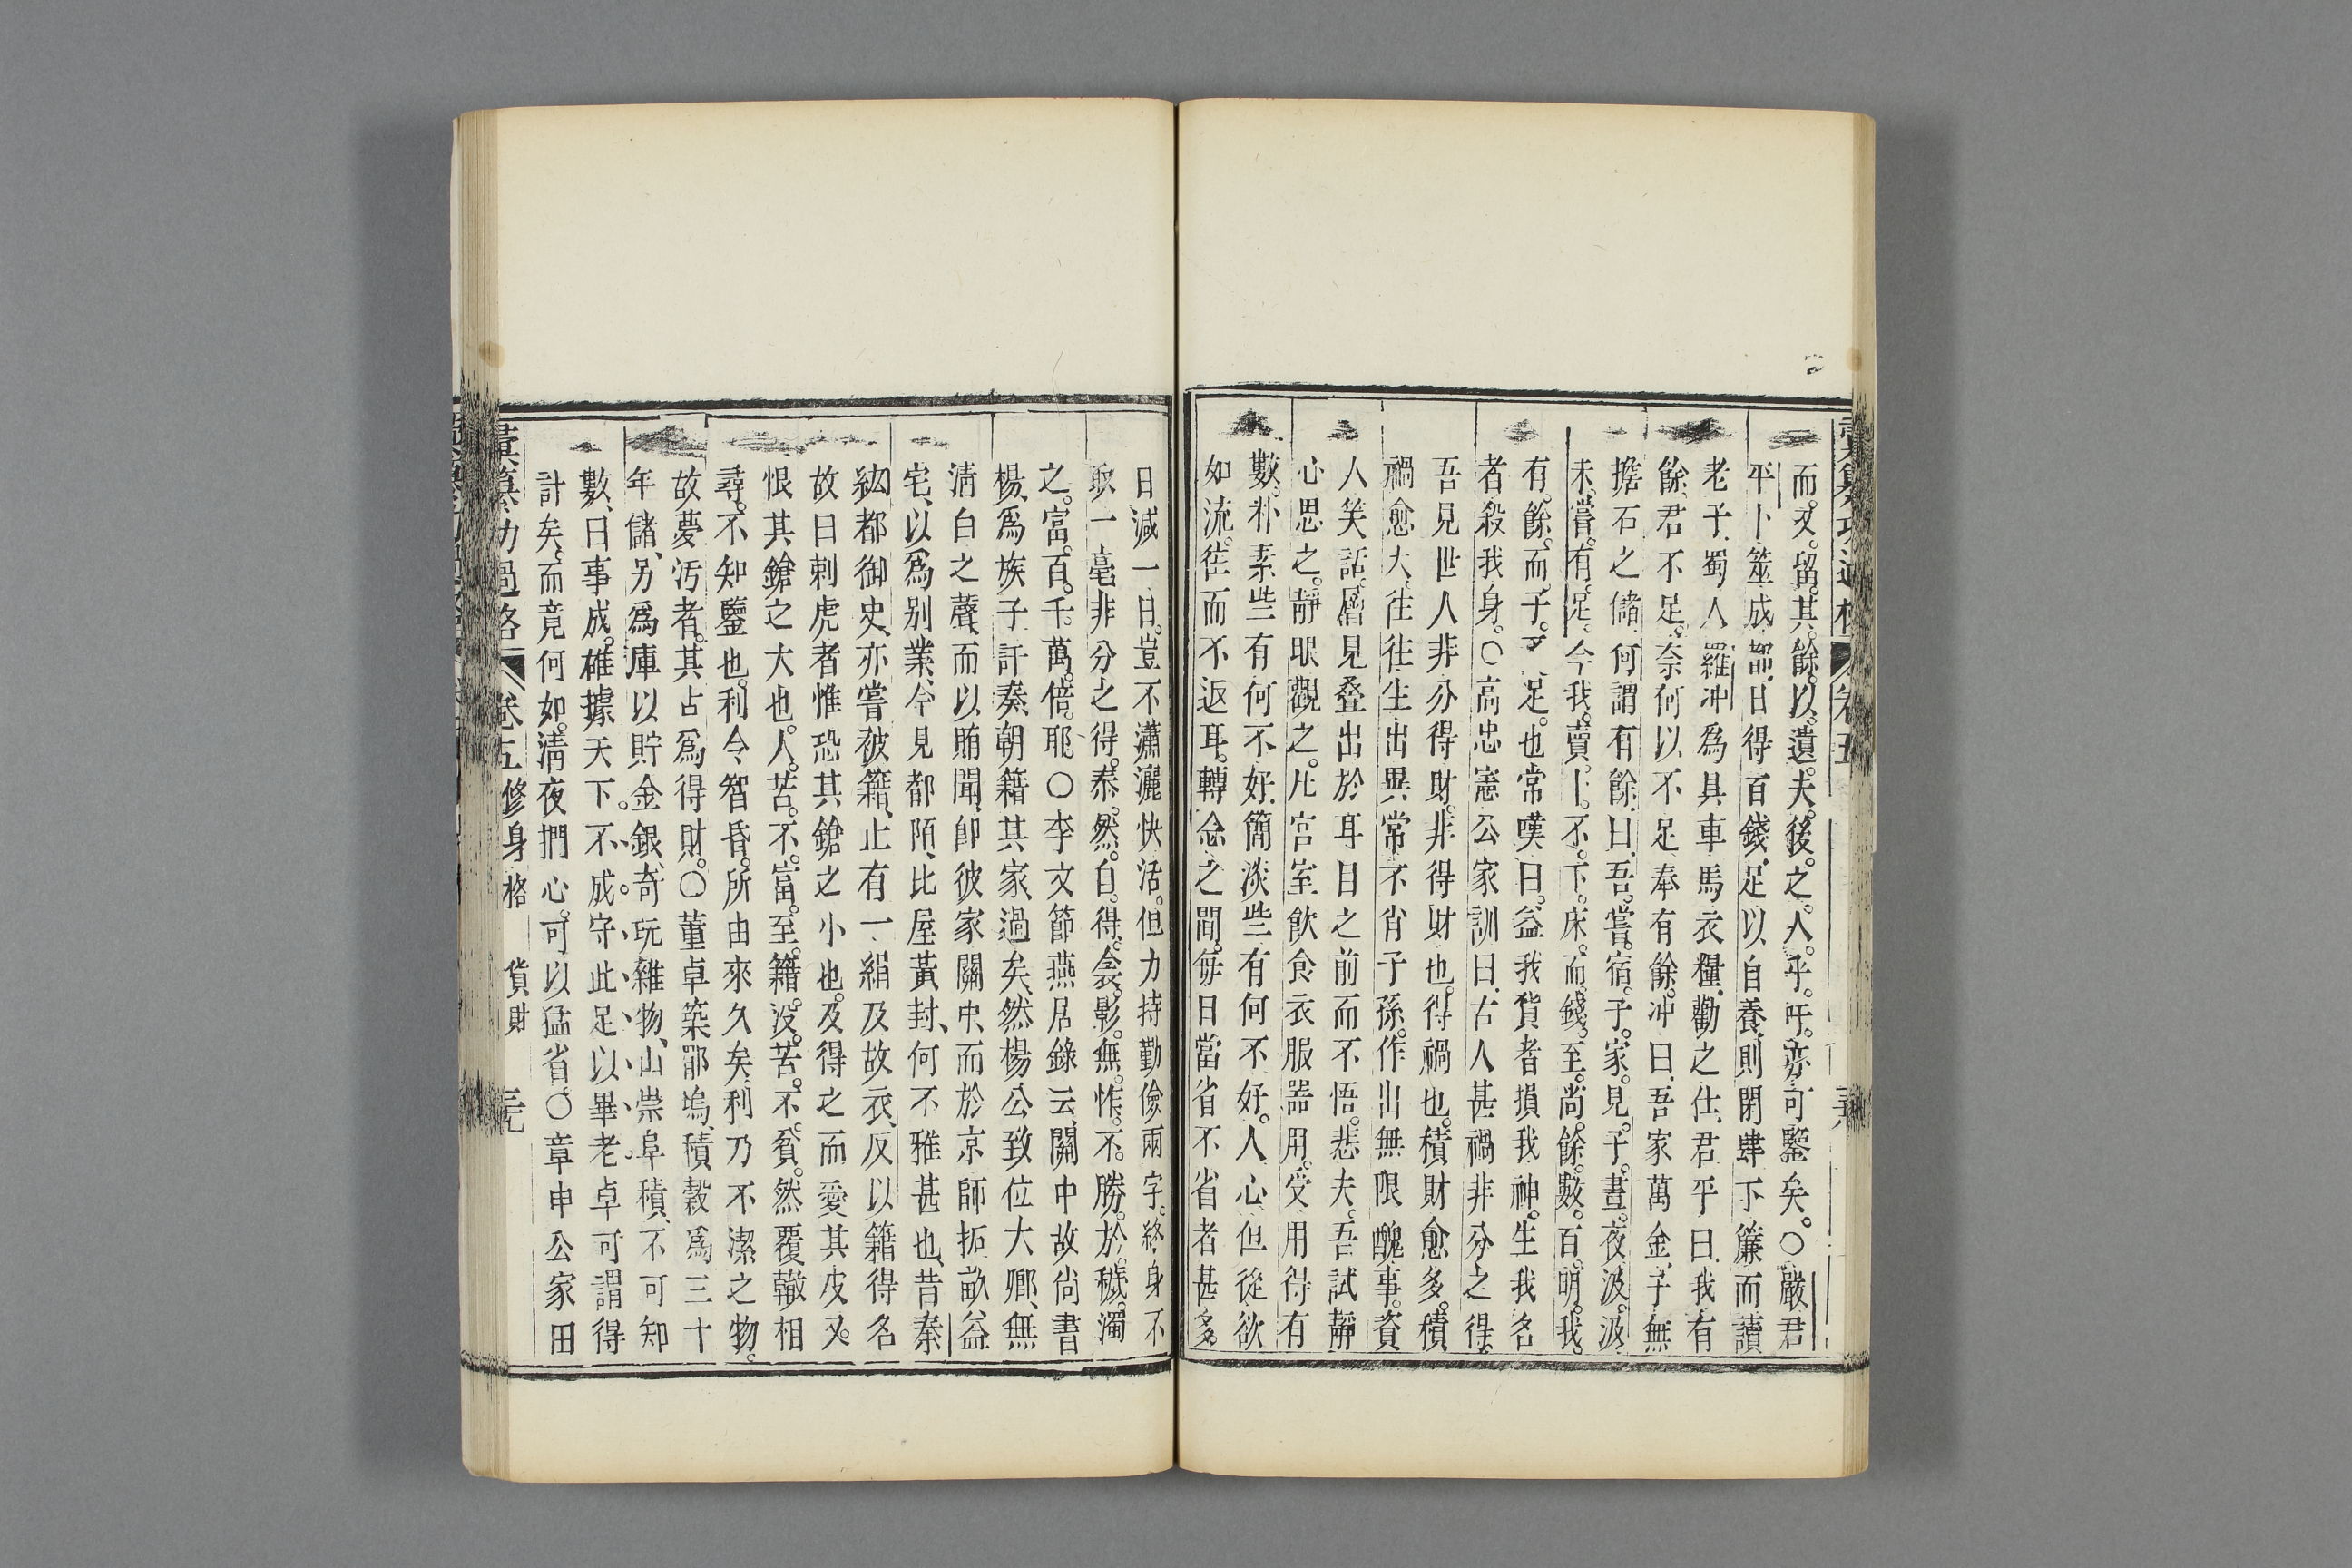 而又留其餘以遺夫後之人乎吁亦可鑒矣○嚴君
平卜筮成都日得百錢足以自養則閉肆下簾而讀
老子蜀人羅冲爲具車馬衣糧勸之仕君平曰我有
餘君不足奈何以不足奉有餘冲曰吾家萬金子無
擔石之儲何謂有餘曰吾嘗宿子家見子晝夜汲汲
未嘗有足今我賣卜不下床而錢至尚餘數百明我
有餘而子不足也常嘆曰益我貨者損我神生我名
者殺我身○高忠憲公家訓曰古人甚禍非分之得
吾見世人非分得財非得財也得禍也積財愈多積
禍愈大往往生出異常不肖子孫作出無限醜事資
人笑話層見叠出於耳目之前而不悟悲夫吾試靜
心思之靜眼觀之凡宮室飲食衣服器用受用得有
數朴素些有何不好簡淡些有何不好人心但從欲
如流往而不返耳轉念之間每日當省不省者甚多
日減一日豈不瀟灑快活但力持勤儉兩字終身不
取一毫非分之得泰然自得衾影無怍不勝於穢濁
之富百千萬倍耶○李文節燕居錄云關中故尚書
楊爲族子訐奏朝籍其家過矣然楊公致位大卿無
淸白之聲而以賄聞卽彼家關中而於京師拓畝益
宅以爲别業今見都陌比屋黃封何不雅甚也昔秦
紘都御史亦嘗被籍止有一絹及故衣反以籍得名
故曰刺虎者惟恐其鎗之小也及得之而愛其皮又
恨其鎗之大也人苦不富至籍沒苦不貧然覆轍相
尋不知鑒也利令智昏所由來久矣利乃不潔之物
故夢汚者其占爲得財○董卓築郿塢積穀爲三十
年儲另爲庫以貯金銀奇玩雜物山崇阜積不可知
數曰事成雄據天下不成守此足以畢老卓可謂得
計矣而竟何如淸夜捫心可以猛省○章申公家田
彙纂功過格 卷五 修身格 貨財